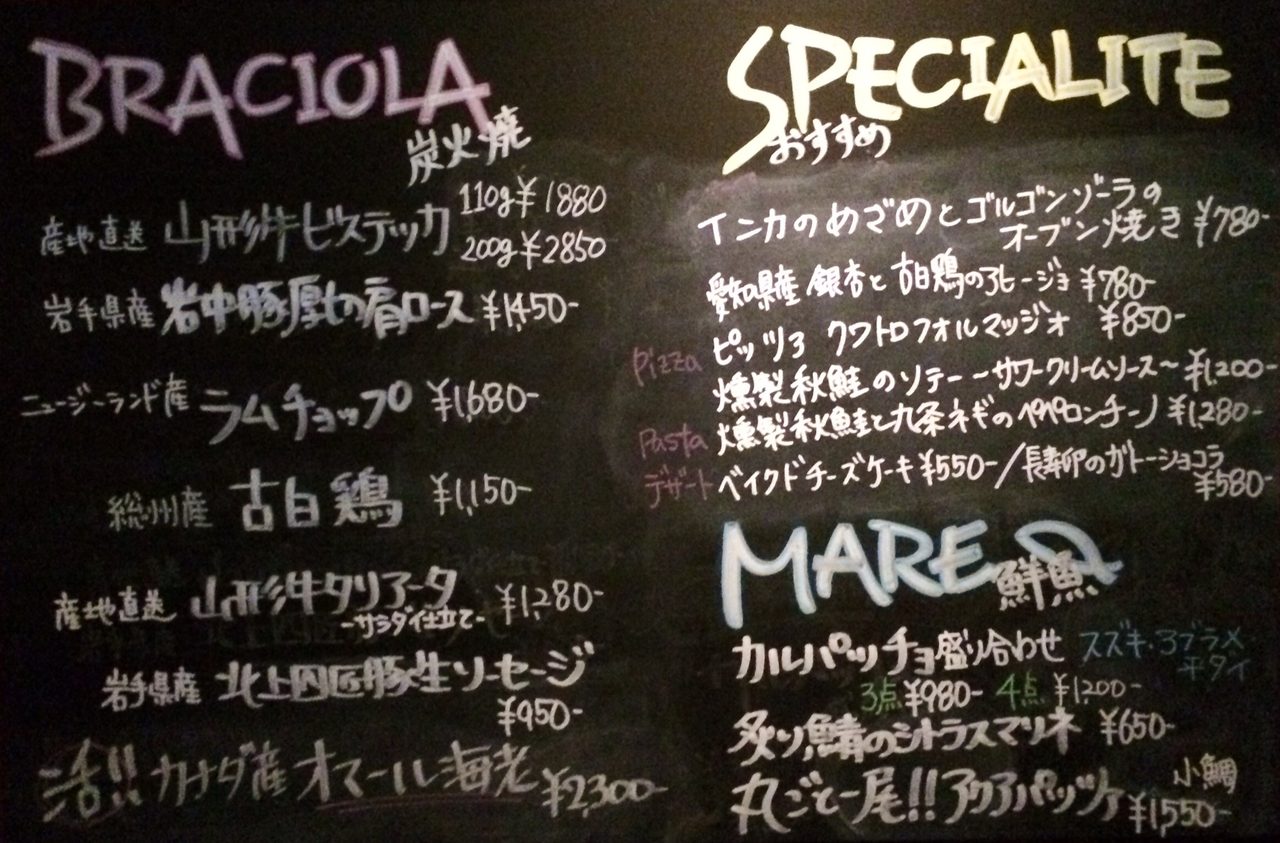 BRACIOLA
炭火焼
産地直送 山形牛ビステッカ 110g¥1880
200g¥2850
岩手県産 岩中豚厚切肩ロース ¥1,450-
ニュージーランド産 ラムチョップ ¥1,680-
総州産 古白鶏 ¥1,150-
産地直送 山形牛タリアータ ¥1,280-
-サラダ仕立て-
岩手県産 北上四匹豚生ソーセージ
¥950-
活!! カナダ産オマール海老 ¥2,300-
SPECIALITE
おすすめ
インカのめざめとゴルゴンゾーラの
オーブン焼き ¥780-
愛知県産 銀杏と古白鶏のアヒージョ ¥780-
Pizza ピッツァ クワトロフォルマッジオ ¥850-
燻製秋鮭のソテー〜サワークリームソース〜 ¥1,200-
Pasta 燻製秋鮭と九条ネギのペペロンチーノ ¥1,280-
デザート ベイクドチーズケーキ ¥550-/長寿卵のガトーショコラ
¥580-
MARE
鮮魚
カルパッチョ盛り合わせ スズキ・アブラメ
平タイ
3点 ¥980- 4点 ¥1,200-
炙り鯖のシトラスマリネ ¥650-
丸ごと一尾!! アクアパッツァ 小鯛
¥1,550-